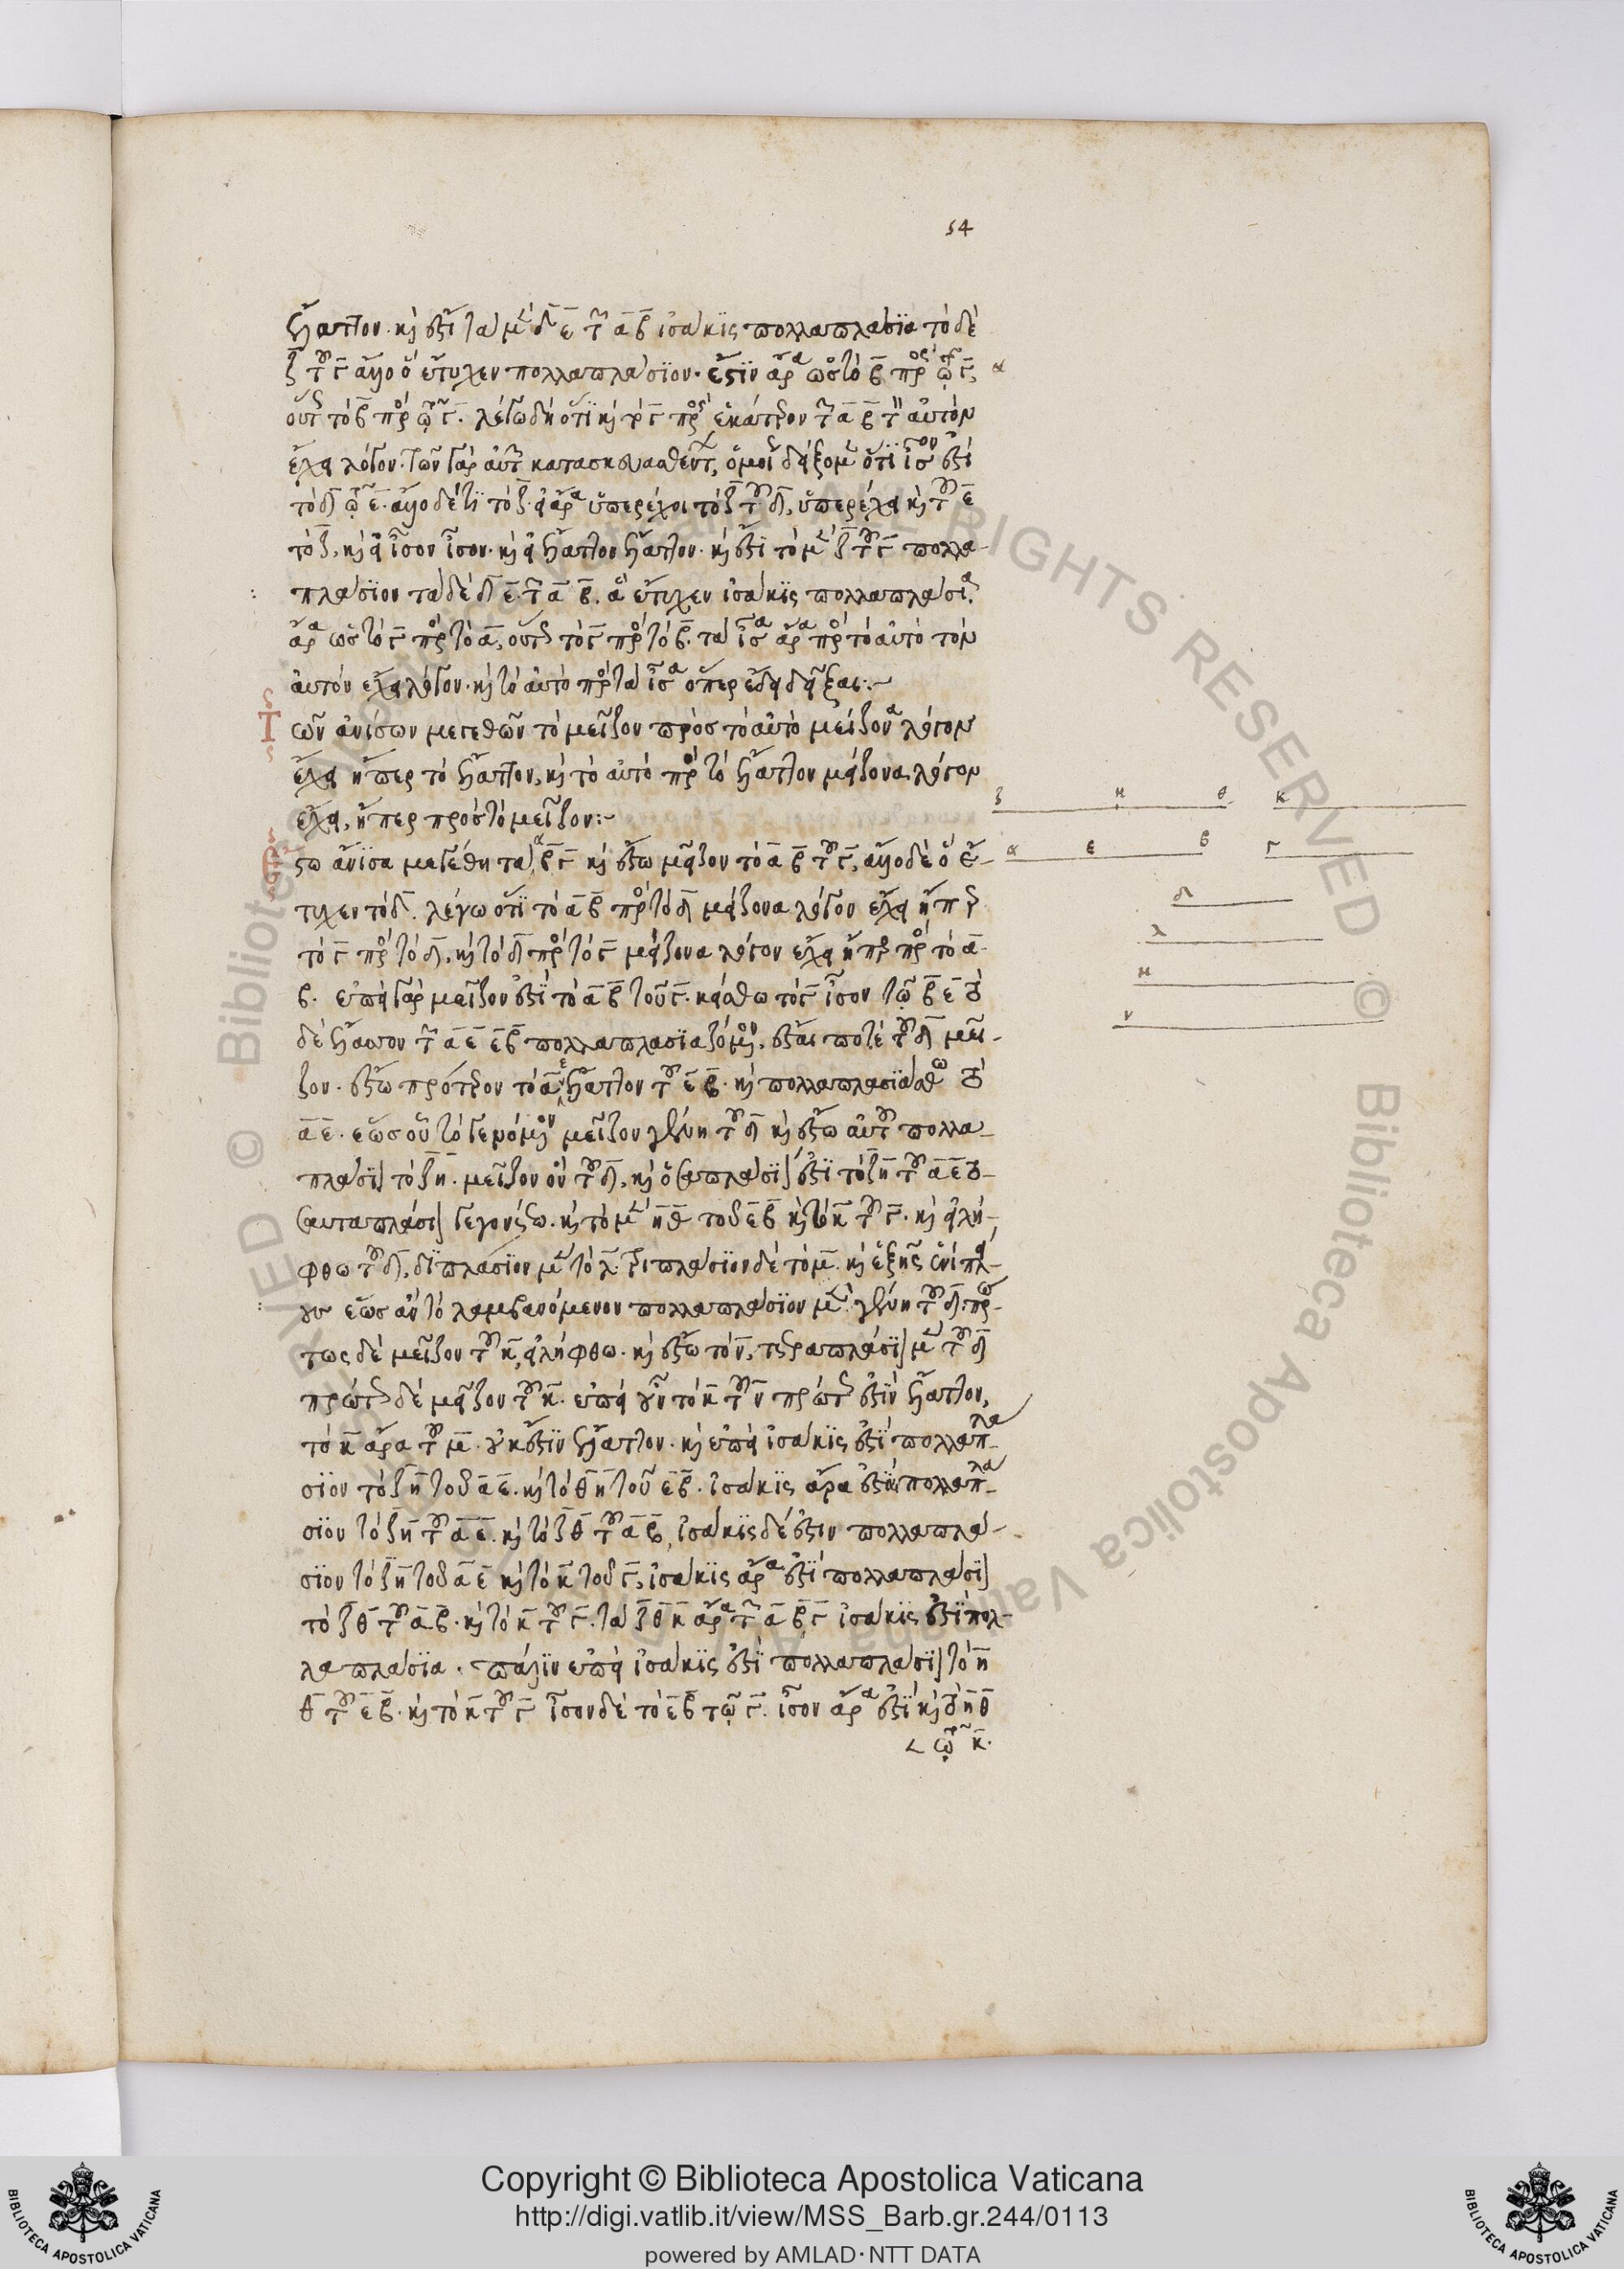 54
ἔλαττον· καὶ ἔστι τὰ μὲν δ ε τῶν α β ἰσάκις πολλαπλάσια τὸ δὲ
ζ τοῦ γ ἄλλο ὃ ἔτυχεν πολλαπλάσιον· ἔστιν ἄρα ὡς τὸ β πρὸς τῷ γ,
οὕτως τὸ β πρὸς τῷ γ. λέγω δὴ ὅτι καὶ τὸ γ πρὸς ἑκάτερον τῶν α β τὸν αὐτὸν
ἔχει λόγον· τῶν γὰρ αὐτῶν κατασκευασθέντων, ὁμοίως δείξομεν ὅτι ἴσον ἐστὶ
τὸ δ τῷ ε. ἄλλο δέ τι τὸ ζ· εἰ ἄρα ὑπερέχει τὸ ζ τοῦ δ, ὑπερέχει καὶ τοῦ ε
τὸ ζ, καὶ εἰ ἴσον ἴσον· καὶ εἰ ἔλαττον ἔλαττον· καὶ ἔστι τὸ μὲν ζ τοῦ γ πολλα-
πλάσιον τὰ δὲ δ ε τῶν α β, ἃ ἔτυχεν ἰσάκις πολλαπλάσια.
ἄρα ὡς τὸ γ πρὸς τὸ α, οὕτως τὸ γ πρὸς τὸ β. τὰ ἴσα ἄρα πρὸς τὸ αὐτὸ τὸν
αὐτὸν ἔχει λόγον· καὶ τὸ αὐτὸ πρὸς τὰ ἴσα ὅπερ ἔδει δεῖξαι:~
Τῶν ἀνίσων μεγεθῶν τὸ μεῖζον πρὸς τὸ αὐτὸ μείζονα λόγον
ἔχει ἤπερ τὸ ἔλαττον, καὶ τὸ αὐτὸ πρὸς τὸ ἔλαττον μείζονα λόγον
ἔχει, ἤπερ πρὸς τὸ μεῖζον:~
Ἔστω ἄνισα μεγέθη τὰ α β γ καὶ ἔστω μεῖζον τὸ α β τοῦ γ, ἄλλο δὲ ὃ ἔ-
τυχεν τὸ δ. λέγω ὅτι τὸ α β πρὸς τὸ δ μείζονα λόγον ἔχει ἤπερ
τὸ γ πρὸς τὸ δ, καὶ τὸ δ πρὸς τὸ γ μείζονα λόγον ἔχει ἤπερ πρὸς τὸ α
β. ἐπεὶ γὰρ μεῖζόν ἐστι τὸ α β τοῦ γ· κείσθω τὸ γ ἴσον τῷ β ε τὸ
δὲ ἔλασσον τῶν α ε ε β πολλαπλασιαζόμενον, ἔσται ποτὲ τοῦ δ μεῖ-
ζον· ἔστω πρότερον τὸ α ε ἔλαττον τοῦ ε β· καὶ πολλαπλασιάσθω τὸ
α ε· ἕως οὗ τὸ γενόμενον μεῖζον γένηται τοῦ δ καὶ ἔστω αὐτοῦ πολλα-
πλάσιον τὸ ζ η μεῖζον ὂν τοῦ δ, καὶ ὁσαπλάσιόν ἐστι τὸ ζ η τοῦ α ε το-
σαυταπλάσιον γεγονέτω· καὶ τὸ μὲν η θ τοῦ ε β καὶ τὸ κ τοῦ γ· καὶ εἰλή-
φθω τοῦ δ, διπλάσιον μὲν τὸ λ τριπλάσιον δὲ τὸ μ καὶ ἑξῆς ἑνὶ πλεί-
ον ἕως ἂν τὸ λαμβανόμενον πολλαπλάσιον μὲν γένηται τοῦ δ· πρώ-
τως δὲ μεῖζον τοῦ κ, εἰλήφθω· καὶ ἔστω τὸ ν, τετραπλάσιον μὲν τοῦ δ
πρώτως δὲ μεῖζον τοῦ κ· ἐπεὶ οὖν τὸ κ τοῦ ν πρώτως ἐστὶν ἔλαττον,
τὸ κ ἄρα τοῦ μ οὐκ ἔστιν ἔλαττον· καὶ ἐπεὶ ἰσάκις ἐστὶ πολλαπλά-
σιον τὸ ζ η τοῦ α ε· καὶ τὸ θ η τοῦ ε β· ἰσάκις ἄρα ἐστὶ πολλαπλά-
σιον τὸ ζ η τοῦ α ε· καὶ τὸ ζ θ τοῦ α β, ἰσάκις δέ ἐστιν πολλαπλά-
σιον τὸ ζ η τοῦ α ε καὶ τὸ κ τοῦ γ, ἰσάκις ἄρα ἐστὶ πολλαπλάσιον
τὸ ζ θ τοῦ α β· καὶ τὸ κ τοῦ γ· τὰ ζ θ κ ἄρα τῶν α β γ ἰσάκις ἐστὶ πολ-
λαπλάσια· πάλιν ἐπεὶ ἰσάκις ἐστὶ πολλαπλάσιον τὸ η
θ τοῦ ε β· καὶ τὸ κ τοῦ γ ἴσον δὲ τὸ ε β τῷ γ· ἴσον ἄρα ἐστὶ καὶ τὸ η θ
τῷ κ·
α
ζ η θ κ
α ε β γ
δ
λ
μ
ν
Copyright © Biblioteca Apostolica Vaticana
http://digi.vatlib.it/view/MSS_Barb.gr.244/0113
powered by AMLAD·NTT DATA
BIBLIOTECA APOSTOLICA VATICANA
BIBLIOTECA APOSTOLICA VATICANA
© Biblioteca Apostolica Vaticana ALL RIGHTS RESERVED